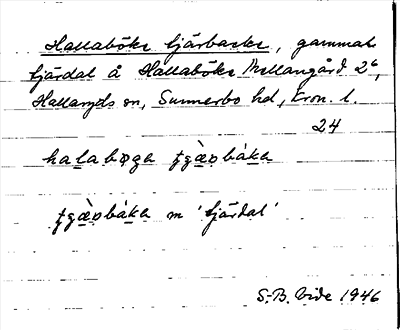 Hallaböke tjärbacke, gammal
tjärdal å Hallaböke Mellangård 2⁶,
Hallaryds sn, Sunnerbo hd, Kron. l.
24
halabøga tʒæ̀rbáka
tʒæ̀rbáka m 'tjärdal'
S-B. Vide 1946